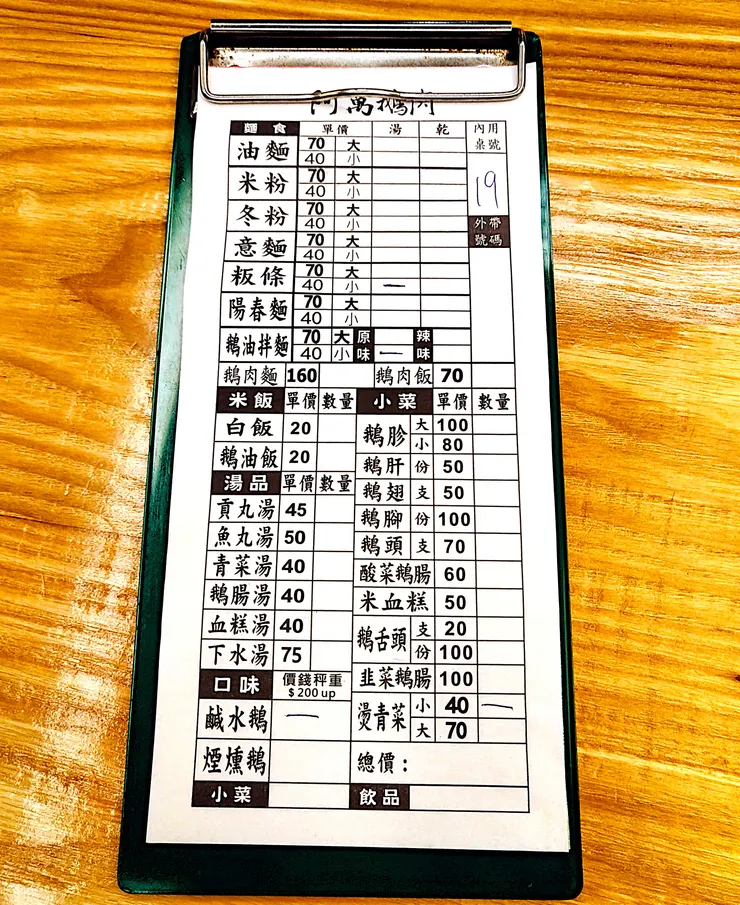 阿萬鵝肉
麵食 單價 湯 乾 內用桌號
油麵 70 大
40 小
19
米粉 70 大
40 小
冬粉 70 大
40 小
外帶號碼
意麵 70 大
40 小
粄條 70 大
40 小 一
陽春麵 70 大
40 小
鵝油拌麵 70 大 原味 辣味
40 小 一
鵝肉麵 160 鵝肉飯 70
米飯 單價 數量 小菜 單價 數量
白飯 20 鵝胗 大 100
小 80
鵝油飯 20 鵝肝 份 50
湯品 單價 數量 鵝翅 支 50
貢丸湯 45 鵝腳 份 100
魚丸湯 50 鵝頭 支 70
青菜湯 40 酸菜鵝腸 60
鵝腸湯 40 米血糕 50
血糕湯 40 鵝舌頭 支 20
份 100
下水湯 75 韭菜鵝腸 100
口味 價錢秤重
$200up
燙青菜 小 40 一
大 70
鹹水鵝 一
煙燻鵝 總價：
小菜 飲品